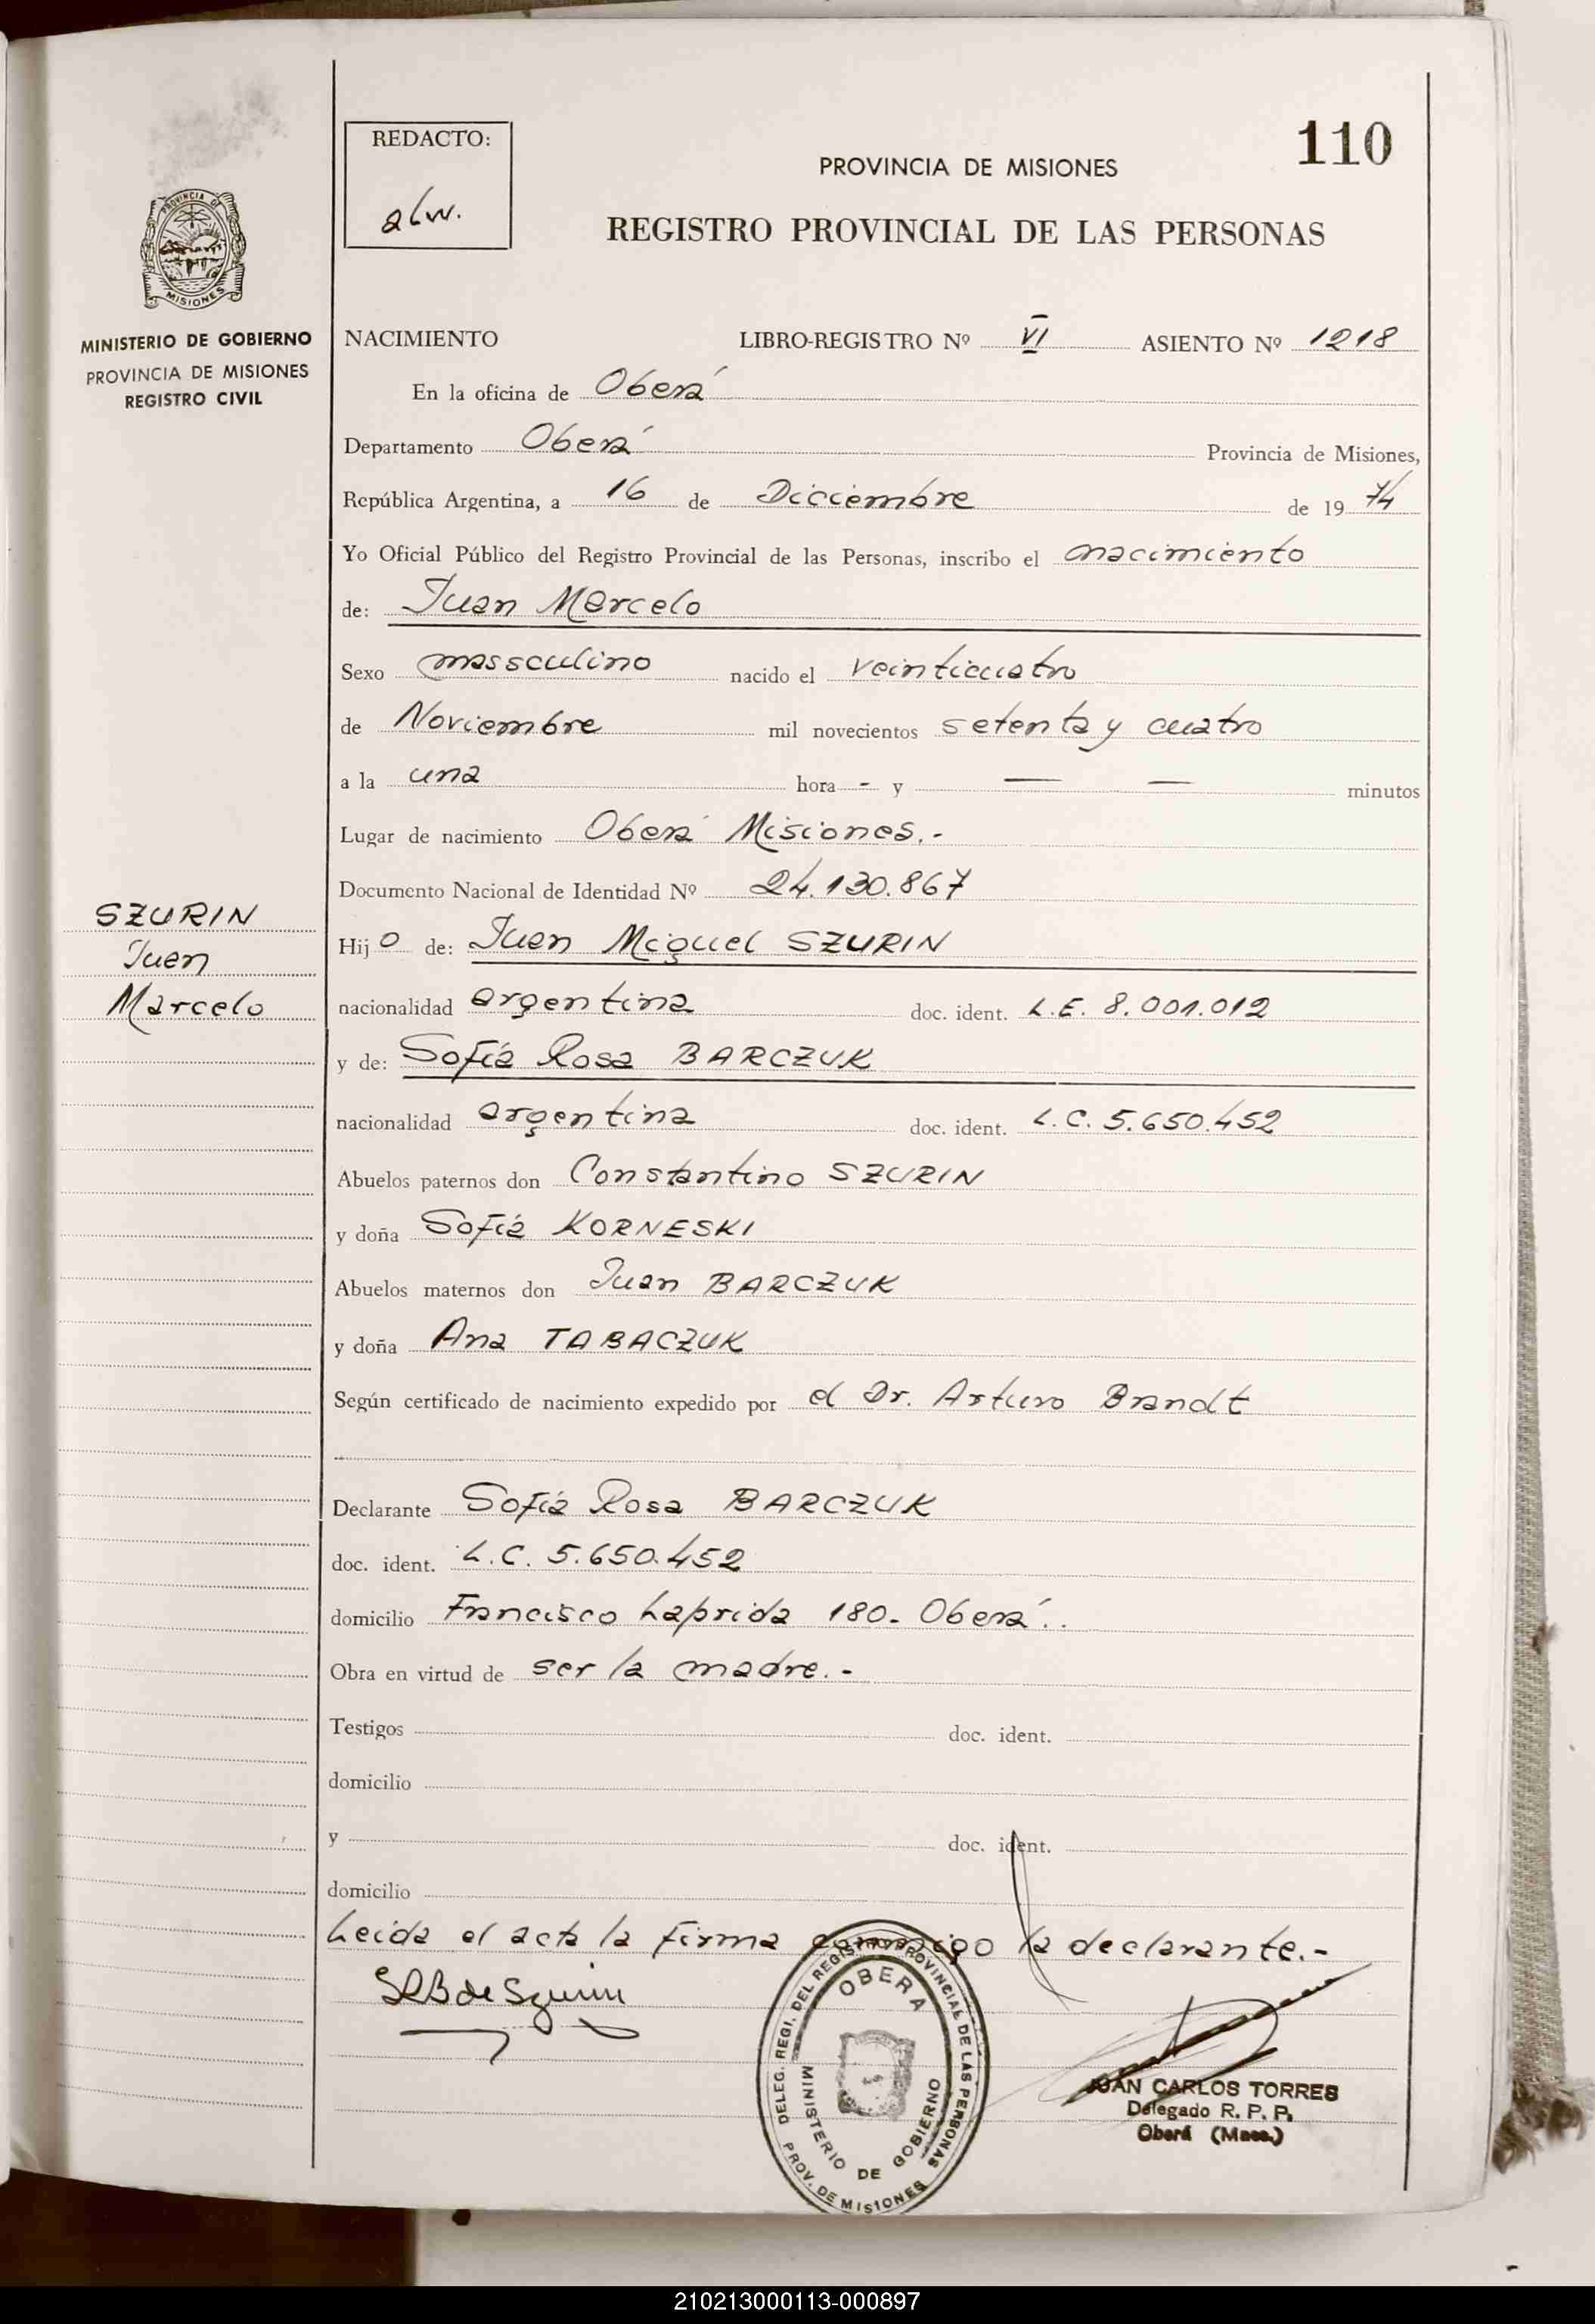 REDACTO:
alw.
110
PROVINCIA DE MISIONES
REGISTRO PROVINCIAL DE LAS PERSONAS
PROVINCIA DE
MISIONES
MINISTERIO DE GOBIERNO
PROVINCIA DE MISIONES
REGISTRO CIVIL
NACIMIENTO LIBRO-REGISTRO Nº VI ASIENTO Nº 1218
En la oficina de Oberá
Departamento Oberá Provincia de Misiones,
República Argentina, a 16 de Diciembre de 1974
Yo Oficial Público del Registro Provincial de las Personas, inscribo el nacimiento
de: Juan Marcelo
Sexo massculino nacido el veinticuatro
de Noviembre mil novecientos setenta y cuatro
a la una hora - y — — minutos
Lugar de nacimiento Oberá Misiones.-
Documento Nacional de Identidad Nº 24.130.867
SZURIN
Juan
Marcelo
Hijo de: Juan Miguel SZURIN
nacionalidad argentina doc. ident. L.E. 8.001.012
y de: Sofía Rosa BARCZUK
nacionalidad argentina doc. ident. L.C. 5.650.452
Abuelos paternos don Constantino SZURIN
y doña Sofía KORNESKI
Abuelos maternos don Juan BARCZUK
y doña Ana TABACZUK
Según certificado de nacimiento expedido por el Dr. Arturo Brandt
Declarante Sofía Rosa BARCZUK
doc. ident. L.C. 5.650.452
domicilio Francisco Laprida 180- Oberá..
Obra en virtud de ser la madre.-
Testigos doc. ident.
domicilio
y doc. ident.
domicilio
Leída el acta la firma conmigo la declarante.-
SRB de Szurin
DELEG. REGI. DEL REGISTRO PROVINCIAL DE LAS PERSONAS
OBERA
MINISTERIO DE GOBIERNO
PROV. DE MISIONES
JUAN CARLOS TORRES
Delegado R. P. P.
Oberá (Mnes.)
210213000113-000897